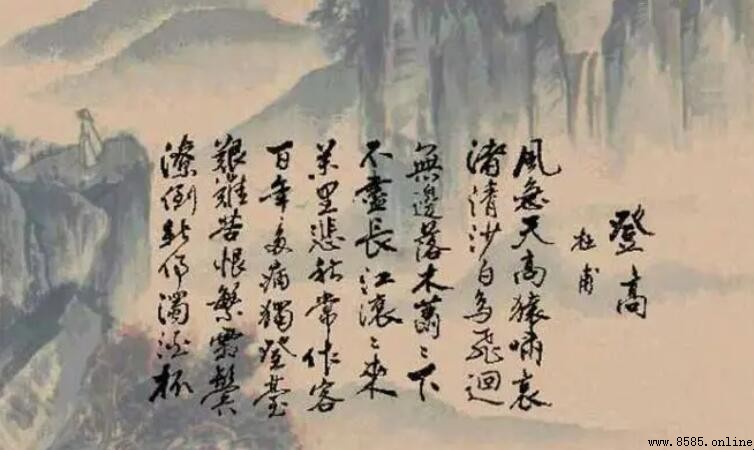 登高
杜甫
風急天高猿嘯哀
渚清沙白鸟飛迴
無邊落木蕭〻下
不盡長江滾〻來
万里悲秋常作客
百年多病獨登臺
艱難苦恨繁霜鬢
潦倒新停濁酒杯
www.8585.online